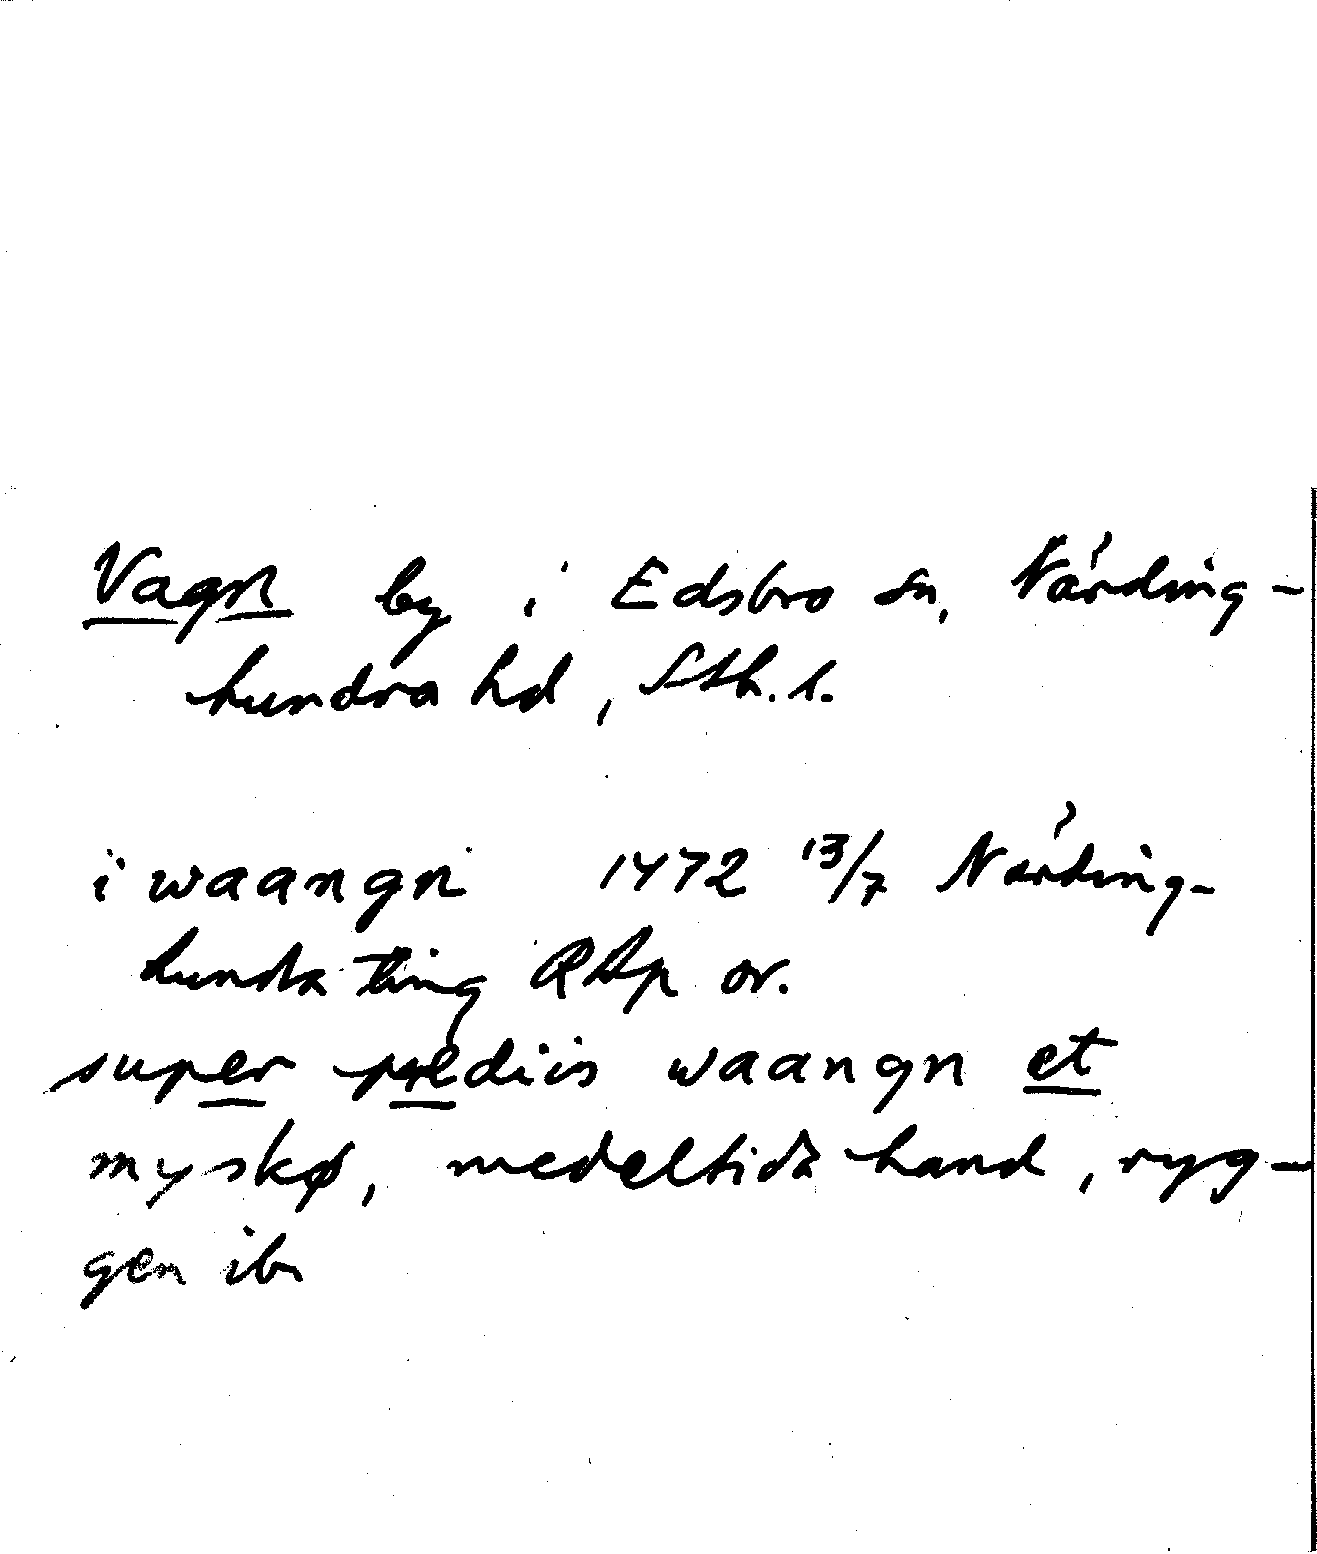 Vagn by i Edsbro sn, Närding-
hundra hd, Sth. l.
i waangn 1472 13/7 Närding-
hundra ting RAp or.
super prediis waangn et
myskø, medeltida hand, ryg-
gen ib